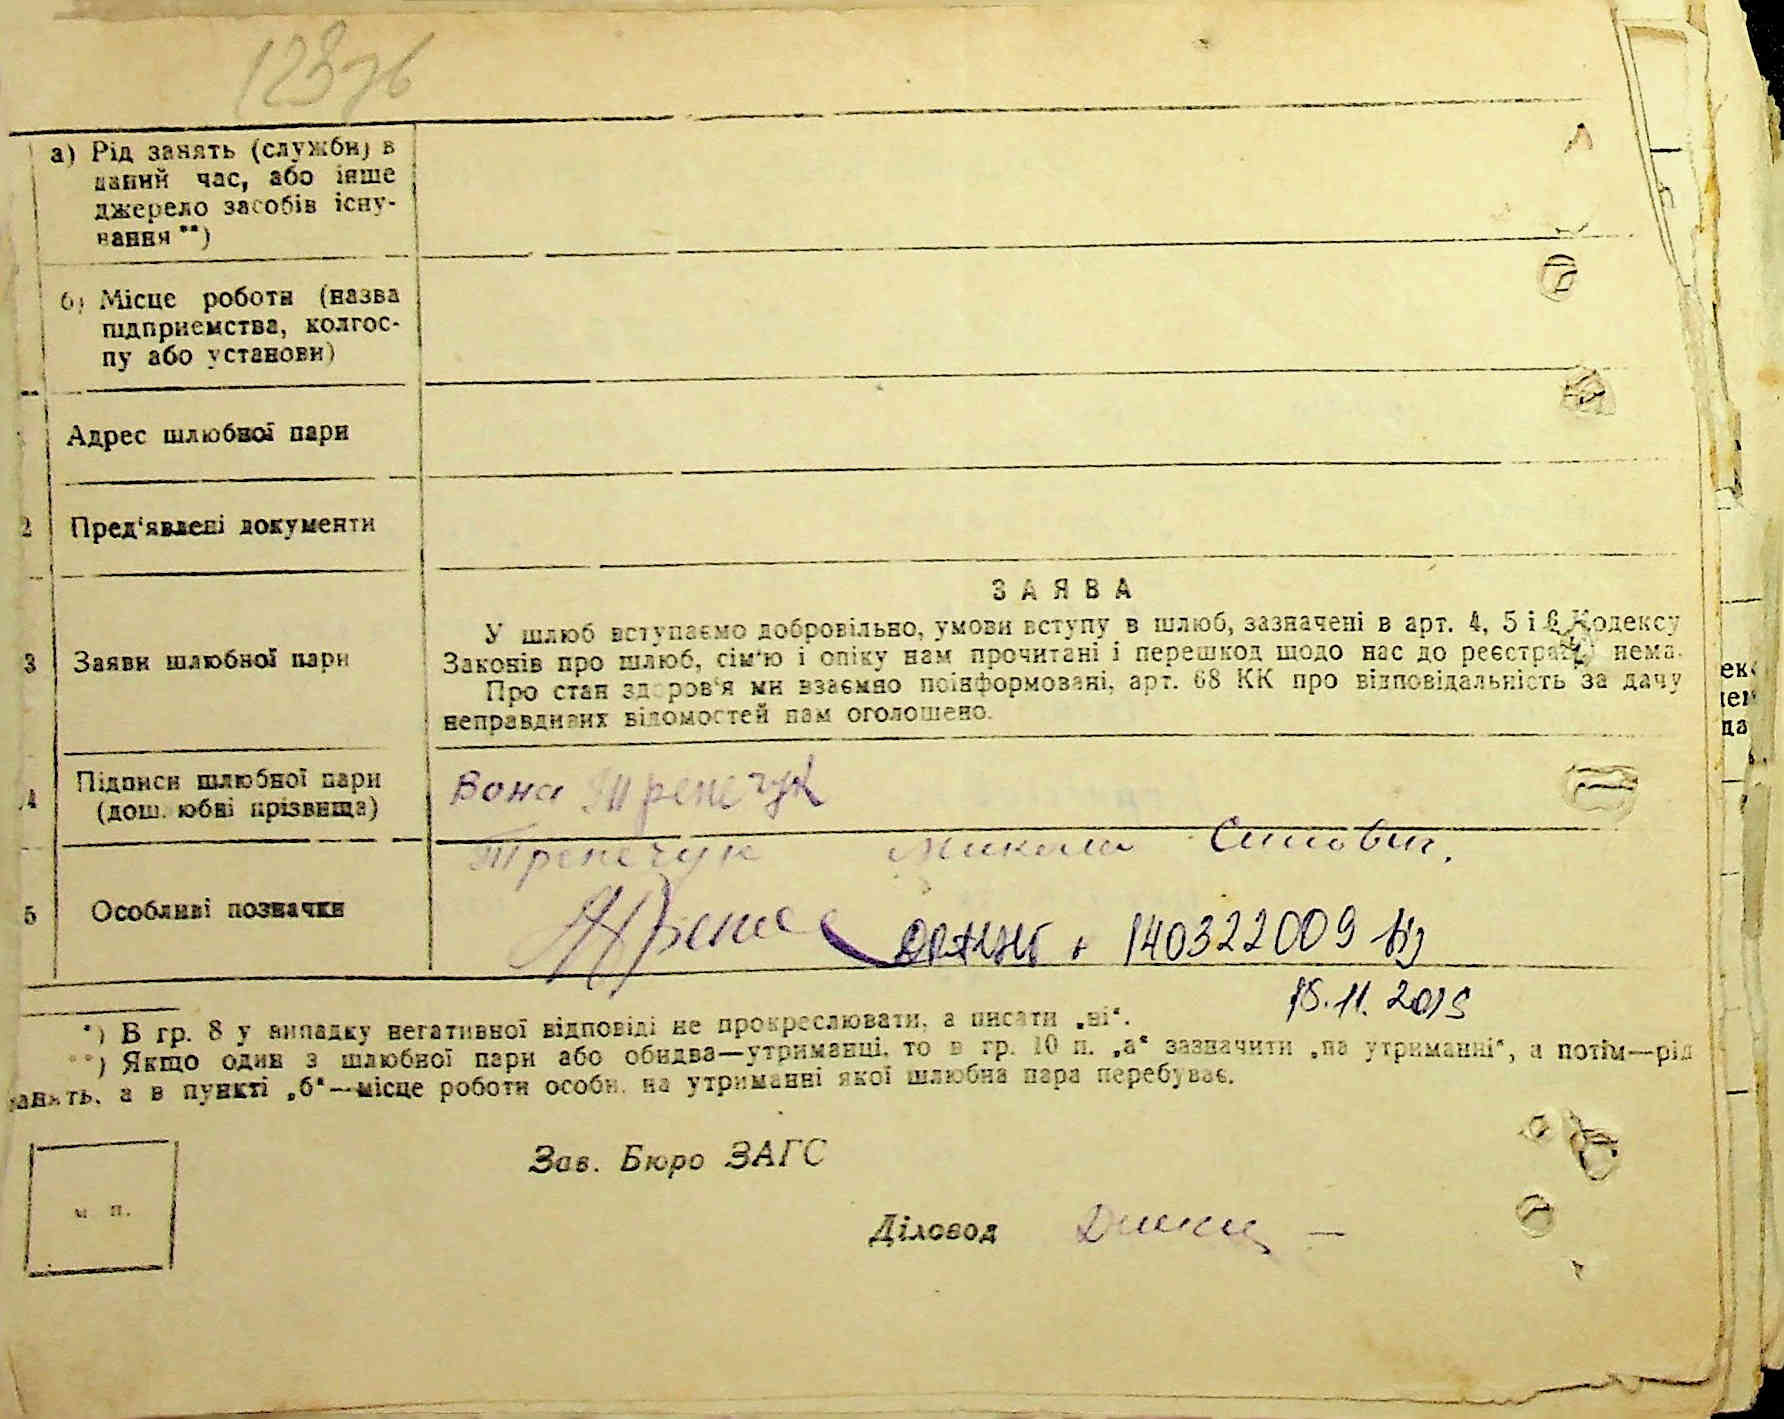 а) Рід занять (служби) в
даний час, або інше
джерело засобів існу-
вання **)
б) Місце роботи (назва
підприємства, колгос-
пу або установи)
Адрес шлюбної пари
2 Пред'явлені документи
ЗАЯВА
У шлюб вступаємо добровільно, умови вступу в шлюб, зазначені в арт. 4, 5 і 6 Кодексу
3 Заяви шлюбної пари
Законів про шлюб, сім'ю і опіку нам прочитані і перешкод щодо нас до реєстрації нема.
Про стан здоров'я ми взаємно поінформовані, арт. 68 КК про відповідальність за дачу
неправдивих відомостей нам оголошено.
4 Підписи шлюбної пари
(дошлюбні прізвища)
Вона Трепечук
Трепечук Микола
5 Особливі позначки
140322009
15.11.2015
*) В гр. 8 у випадку негативної відповіді не прокреслювати, а писати „ні“.
**) Якщо один з шлюбної пари або обидва—утриманці, то в гр. 10 п. „а“ зазначити „на утриманні“, а потім—рід
занять, а в пункті „б“—місце роботи особи, на утриманні якої шлюбна пара перебуває.
Зав. Бюро ЗАГС
м. п.
Діловод